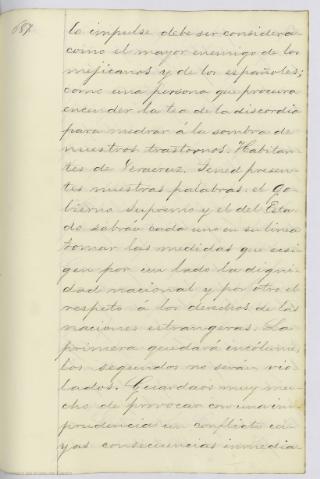 687.
lo impulse debe ser considera
como el mayor enemigo de los
mejicanos y de los españoles;
como una persona que procura
encender la tea de la discordia
para medrar á la sombra de
nuestros trastornos. Habitan-
tes de Veracruz, tened presen-
tes nuestras palabras: el Go-
bierno Supremo y el del Esta-
do sabrán cada uno en su linea
tomar las medidas que exi-
gen por un lado la digni-
dad nacional y por otro el
respeto á los derechos de las
naciones extrangeras. La
primera quedará incólume,
los segundos no serán vio-
lados. Guardaos muy mu-
cho de provocar con una im-
prudencia un conflicto cu-
yas consecuencias inmedia